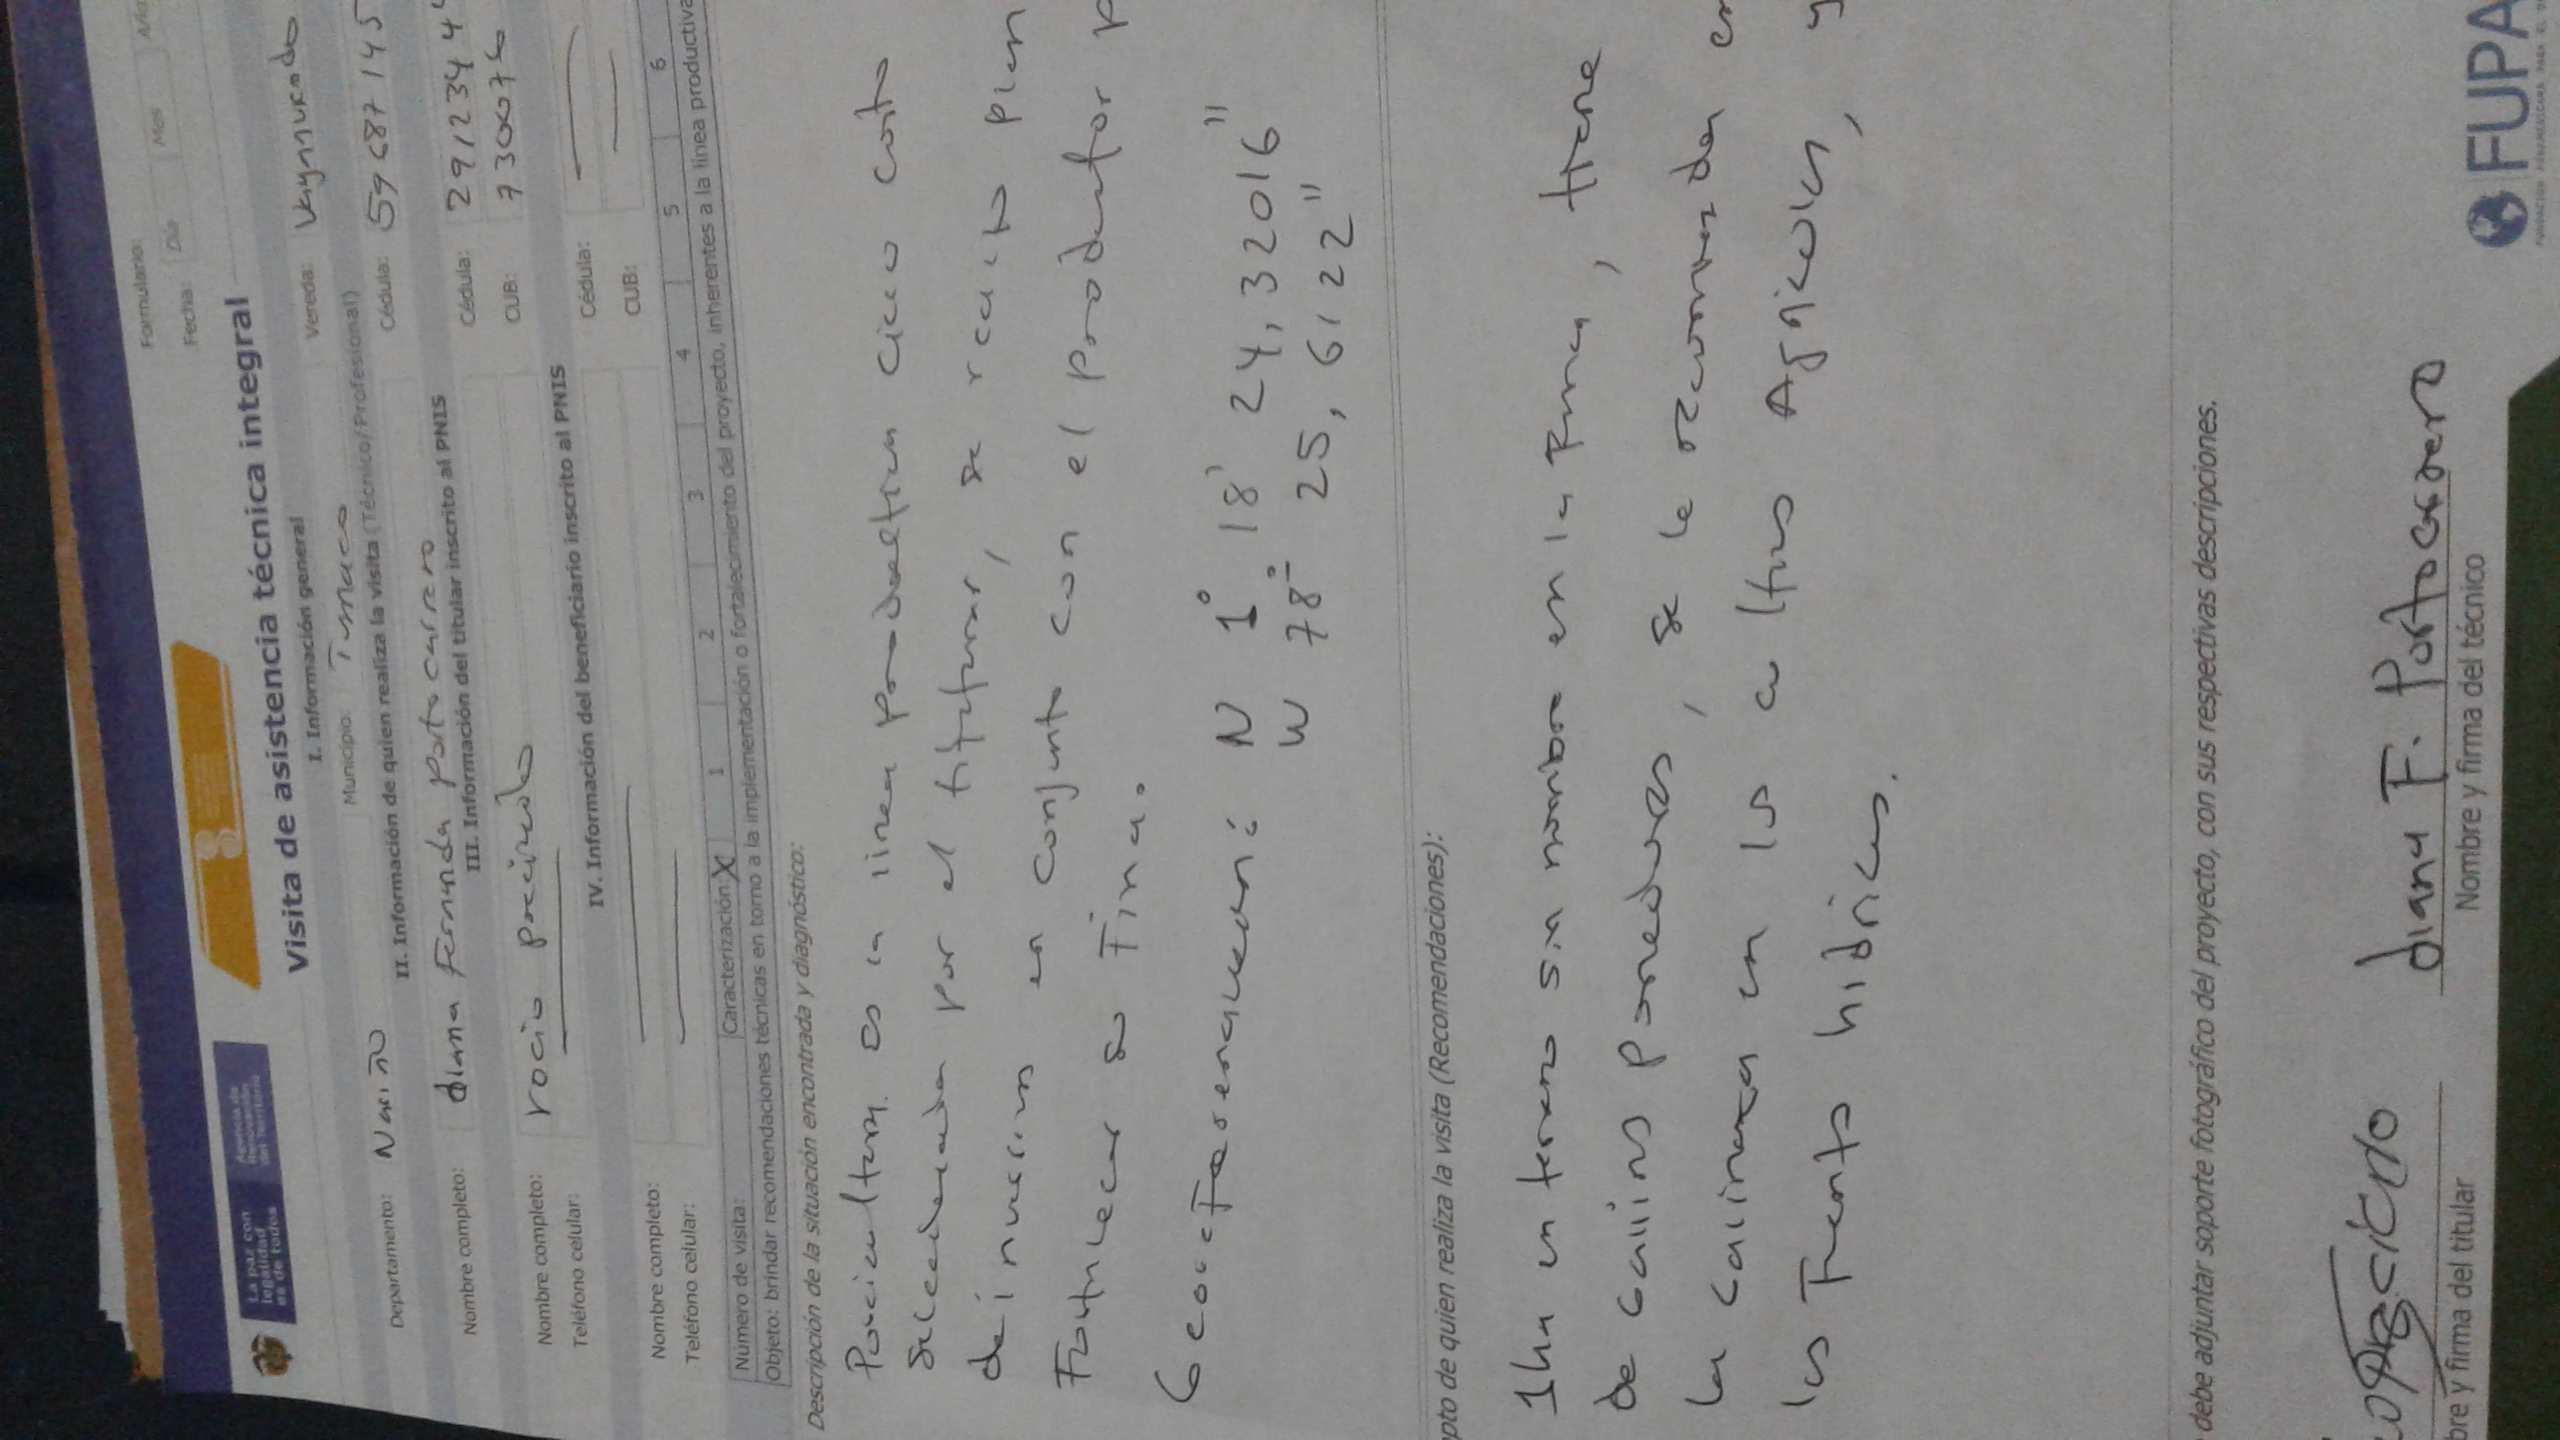 La paz con legalidad es de todos
Agencia de Renovación del Territorio
Formulario:
Fecha: Día Mes Año
Visita de asistencia técnica integral
I. Información general
Departamento: Nariño Municipio: Tumaco Vereda:
II. Información de quien realiza la visita (Técnico/Profesional)
Nombre completo: diana Fernanda portocarrero Cédula: 59687145
III. Información del titular inscrito al PNIS
Nombre completo: rocio preciado Cédula: 2912344
Teléfono celular: CUB:
IV. Información del beneficiario inscrito al PNIS
Nombre completo: Cédula:
Teléfono celular: CUB:
Número de visita: Caracterización: X 1 2 3 4 5 6
Objeto: brindar recomendaciones técnicas en torno a la implementación o fortalecimiento del proyecto, inherentes a la línea productiva
Descripción de la situación encontrada y diagnóstico:
es la linea productiva ciclo corto
por el titular, se realizo plan
de inversion en conjunto con el productor
Fortalecer su Finca.
N 1° 18' 24,32016"
W 78° 25, 6,22"
de quien realiza la visita (Recomendaciones):
1ha un terreno sin nombre en la Finca, tiene
de gallinas ponedoras, se le recomienda
la gallinaza en los cultivos Agricolas, y
las Fuentes hidricas.
debe adjuntar soporte fotográfico del proyecto, con sus respectivas descripciones.
diana F. Portocarrero
y firma del titular Nombre y firma del técnico
FUPA